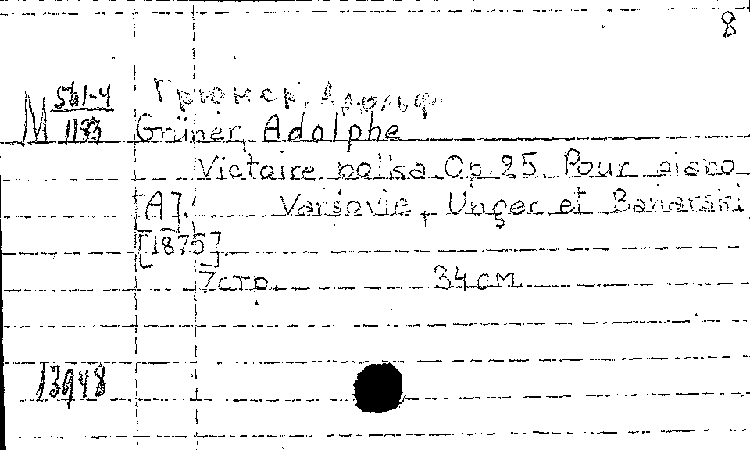 8
М 561-4/1183
Грюнер, Адольф
Grüner, Adolphe
Victoire polka Op 25. Pour piano
[A]. Varsovie, Unger et Banarski
[1875]
7стр. 34см
13948